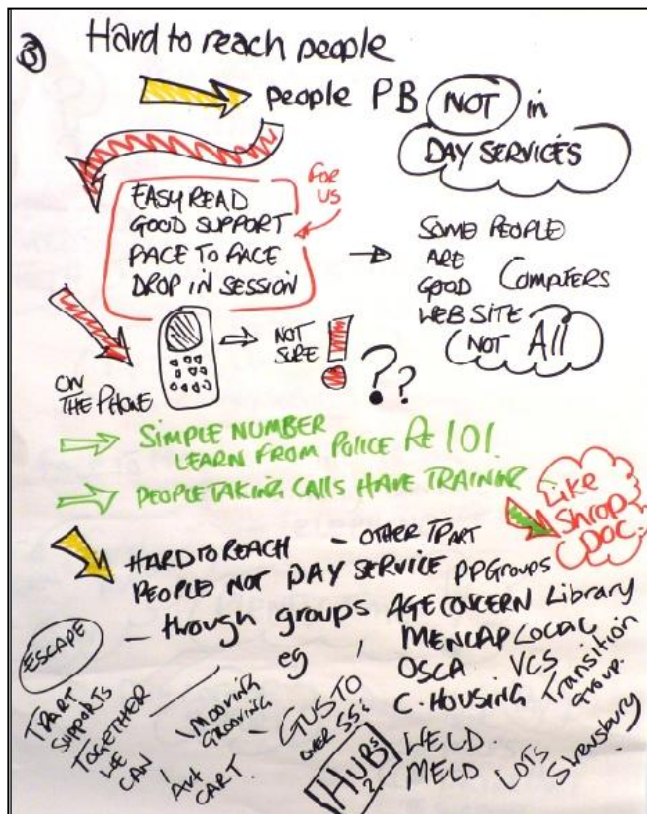 Hard to reach people
people PB NOT in
DAY SERVICES
FOR
US
EASY READ
GOOD SUPPORT
FACE TO FACE
DROP IN SESSION
SOME PEOPLE
ARE
GOOD COMPUTERS
WEBSITE
NOT All
ON
THE PHONE
NOT
SURE ! ? ?
SIMPLE NUMBER
LEARN FROM POLICE RE 101.
PEOPLE TAKING CALLS HAVE TRAINING
Like
Shrop
DOC.
HARD TO REACH – OTHER TPART
PEOPLE NOT DAY SERVICE PPGroups
ESCAPE – through groups AGE CONCERN Library
eg MENCAP LOCAL
OSCA. VCS
C. HOUSING Transition
Group.
WELD.
MELD
LOTS Shrewsbury
TPART
SUPPORTS
TOGETHER
WE
CAN
MOOVING
GROOVING
Art
CART.
GUSTO
OVER 55s
HUBs
2.